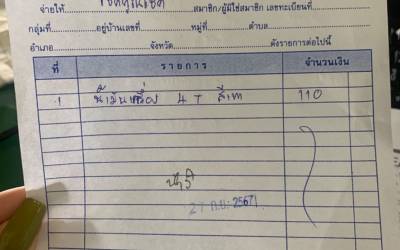 จ่ายให้ สมาชิก/ผู้มิใช่สมาชิก เลขทะเบียนที่
กลุ่มที่ อยู่บ้านเลขที่ หมู่ที่ ตำบล
อำเภอ จังหวัด ดังรายการต่อไปนี้
ที่ รายการ จำนวนเงิน
1 น้ำมันเครื่อง 4 T สีเทา 110
27 ก.ย. 2567